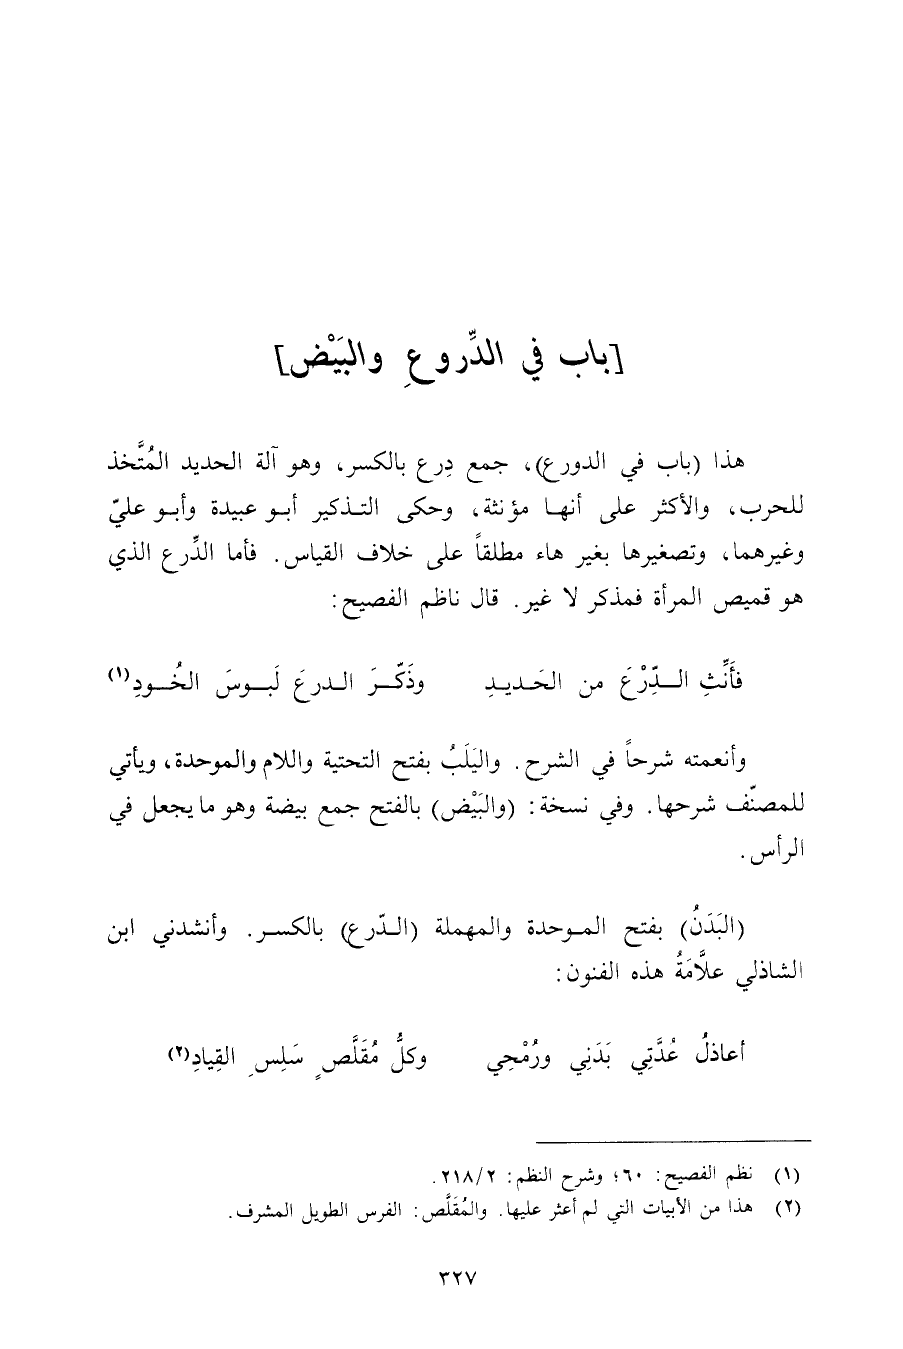 [باب في الدِّروعِ والبَيْض]
هذا (باب في الدورع)، جمع دِرع بالكسر، وهو آلة الحديد المُتَّخذ
للحرب، والأكثر على أنها مؤنثة، وحكى التذكير أبو عبيدة وأبو عليّ
وغيرهما، وتصغيرها بغير هاء مطلقاً على خلاف القياس. فأما الدِّرع الذي
هو قميص المرأة فمذكر لا غير. قال ناظم الفصيح:
فأَنِّثِ الدِّرْعَ من الحَديدِ وذَكّرَ الدرعَ لَبوسَ الخُودِ(١)
وأنعمته شرحاً في الشرح. واليَلَبُ بفتح التحتية واللام والموحدة، ويأتي
للمصنّف شرحها. وفي نسخة: (والبَيْض) بالفتح جمع بيضة وهو ما يجعل في
الرأس.
(البَدَنُ) بفتح الموحدة والمهملة (الدّرع) بالكسر. وأنشدني ابن
الشاذلي علاَّمَةُ هذه الفنون:
أعاذلُ عُدَّتِي بَدَنِي ورُمْحِي وكلُّ مُقَلَّصٍ سَلِسِ القِيادِ(٢)
(١) نظم الفصيح: ٦٠؛ وشرح النظم: ٢١٨/٢.
(٢) هذا من الأبيات التي لم أعثر عليها. والمُقَلَّص: الفرس الطويل المشرف.
٣٢٧